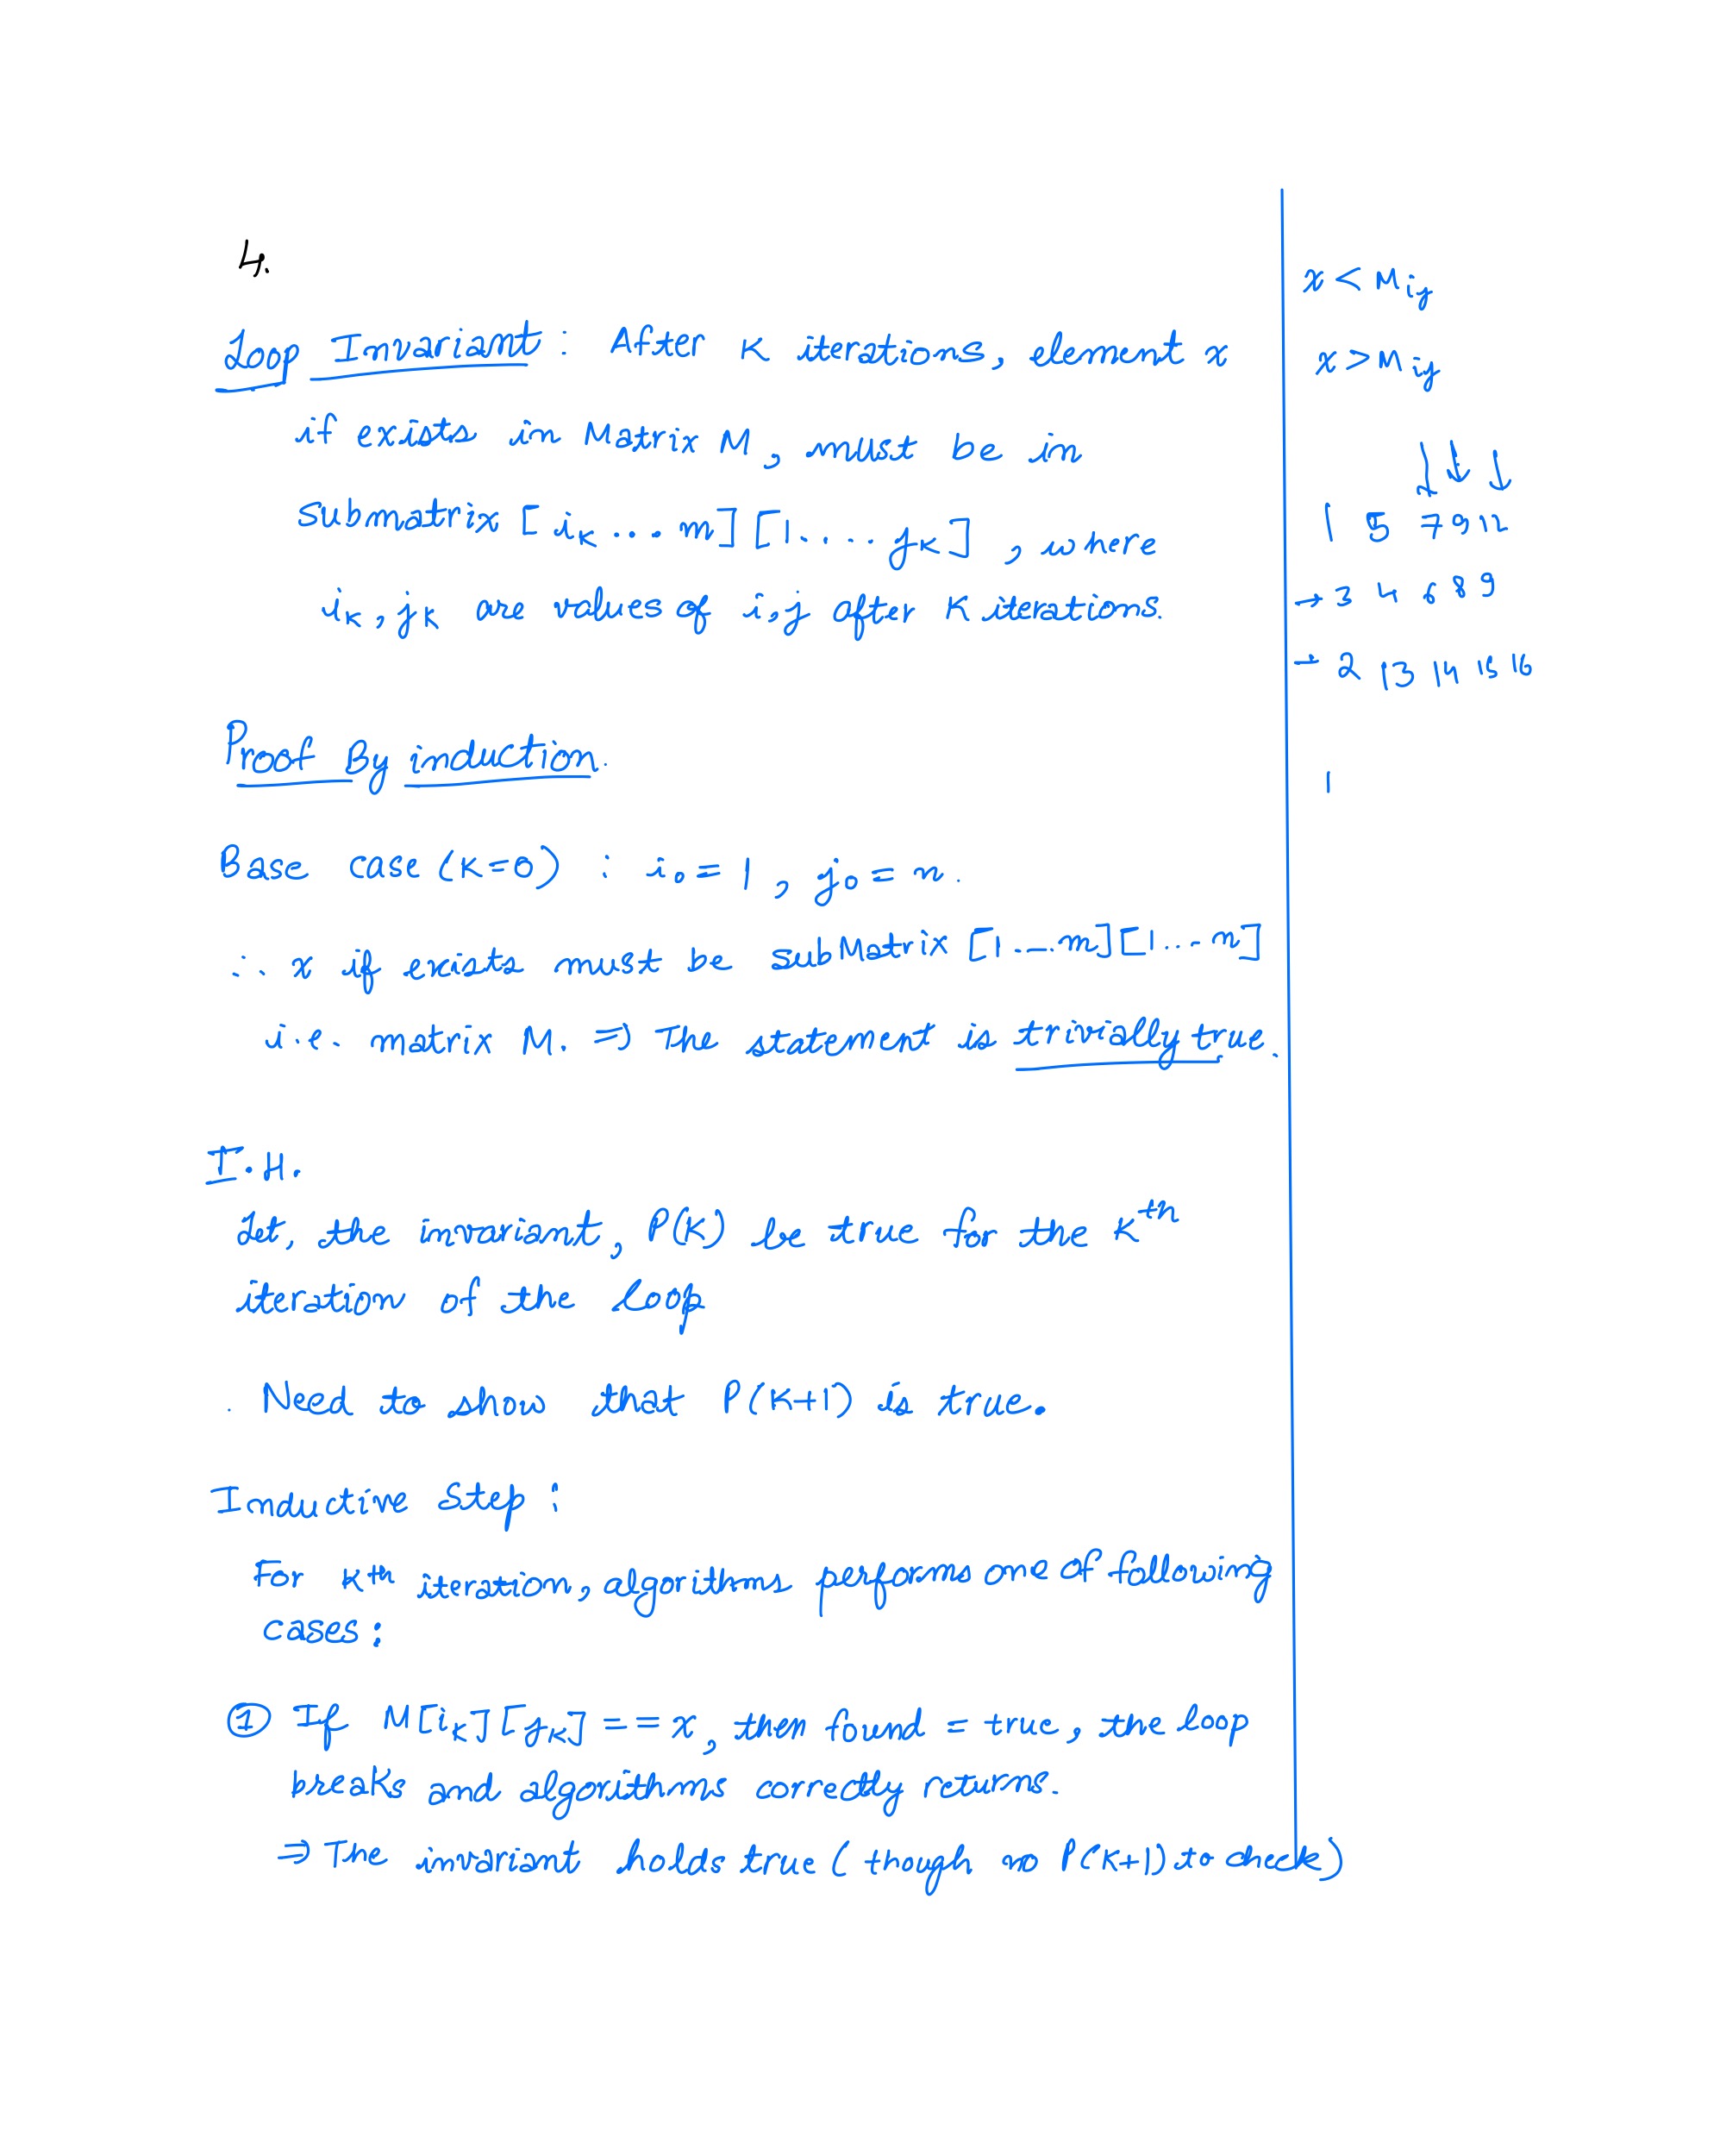 4.
Loop Invariant : After K iterations, element x
if exists in Matrix M, must be in
submatrix [ iₖ ... m] [1. ... jₖ] , where
iₖ, jₖ are values of i,j after K iterations.
Proof By induction.
Base case (K=0) : i₀ = 1 , j₀ = n .
∴ x if exists must be subMatrix [1 .... m][1 ... n]
i.e. matrix M. ⇒ The statement is trivially true.
I.H.
Let, the invariant, P(K) be true for the Kᵗʰ
iteration of the loop
. Need to show that P(K+1) is true.
Inductive Step :
For Kᵗʰ iteration, algorithms performs one of following
cases :
① If M[iₖ] [jₖ] == x, then found = true, the loop
breaks and algorithms correctly returns.
⇒ The invariant holds true ( though no P(K+1) to check)
x < Mᵢⱼ
x > Mᵢⱼ
↓ ↓ ↓
1 5 7 9 12
→ 3 4 6 8 9
→ 2 13 14 15 16
1